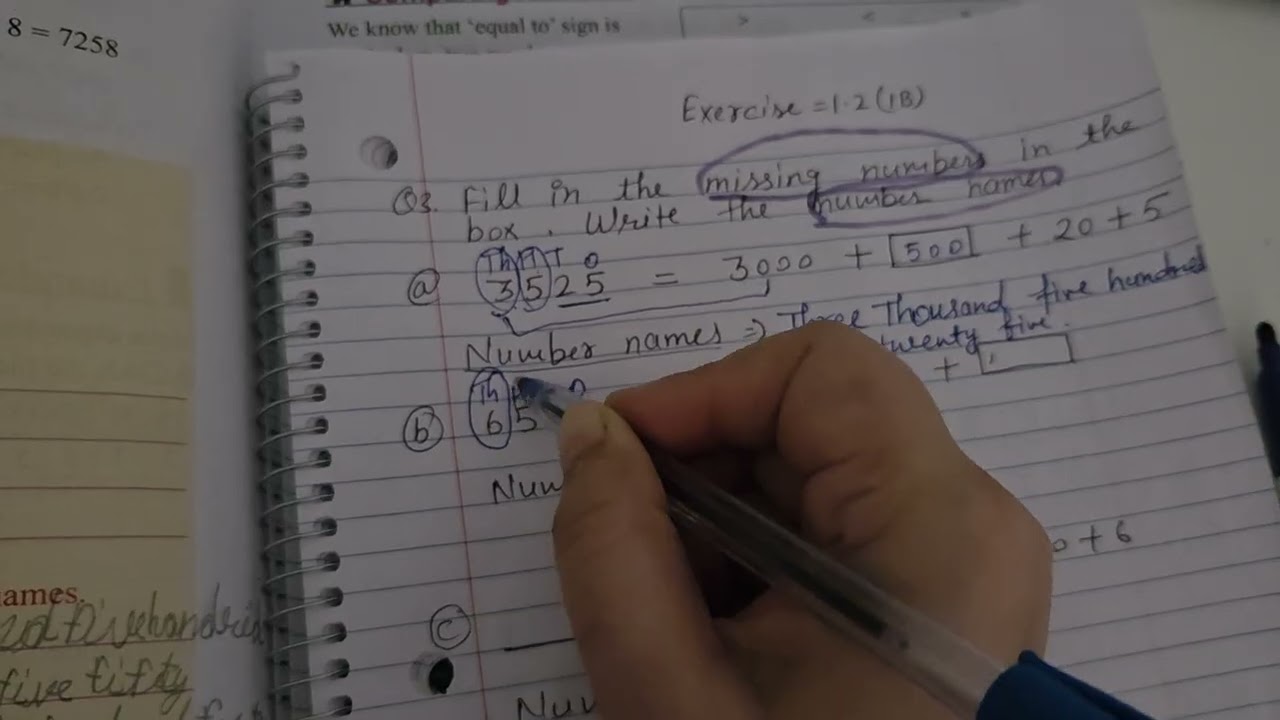 8 = 7258
We know that 'equal to' sign is
> < =
Exercise = 1.2 (1B)
Q3. Fill in the missing numbers in the
box. Write the number names
Th H T O
(a) 3525 = 3000 + 500 + 20 + 5
Number names => Three Thousand five hundred
twenty five.
Th O
(b) 65 +
0 + 6
(c)
ames.
five fifty